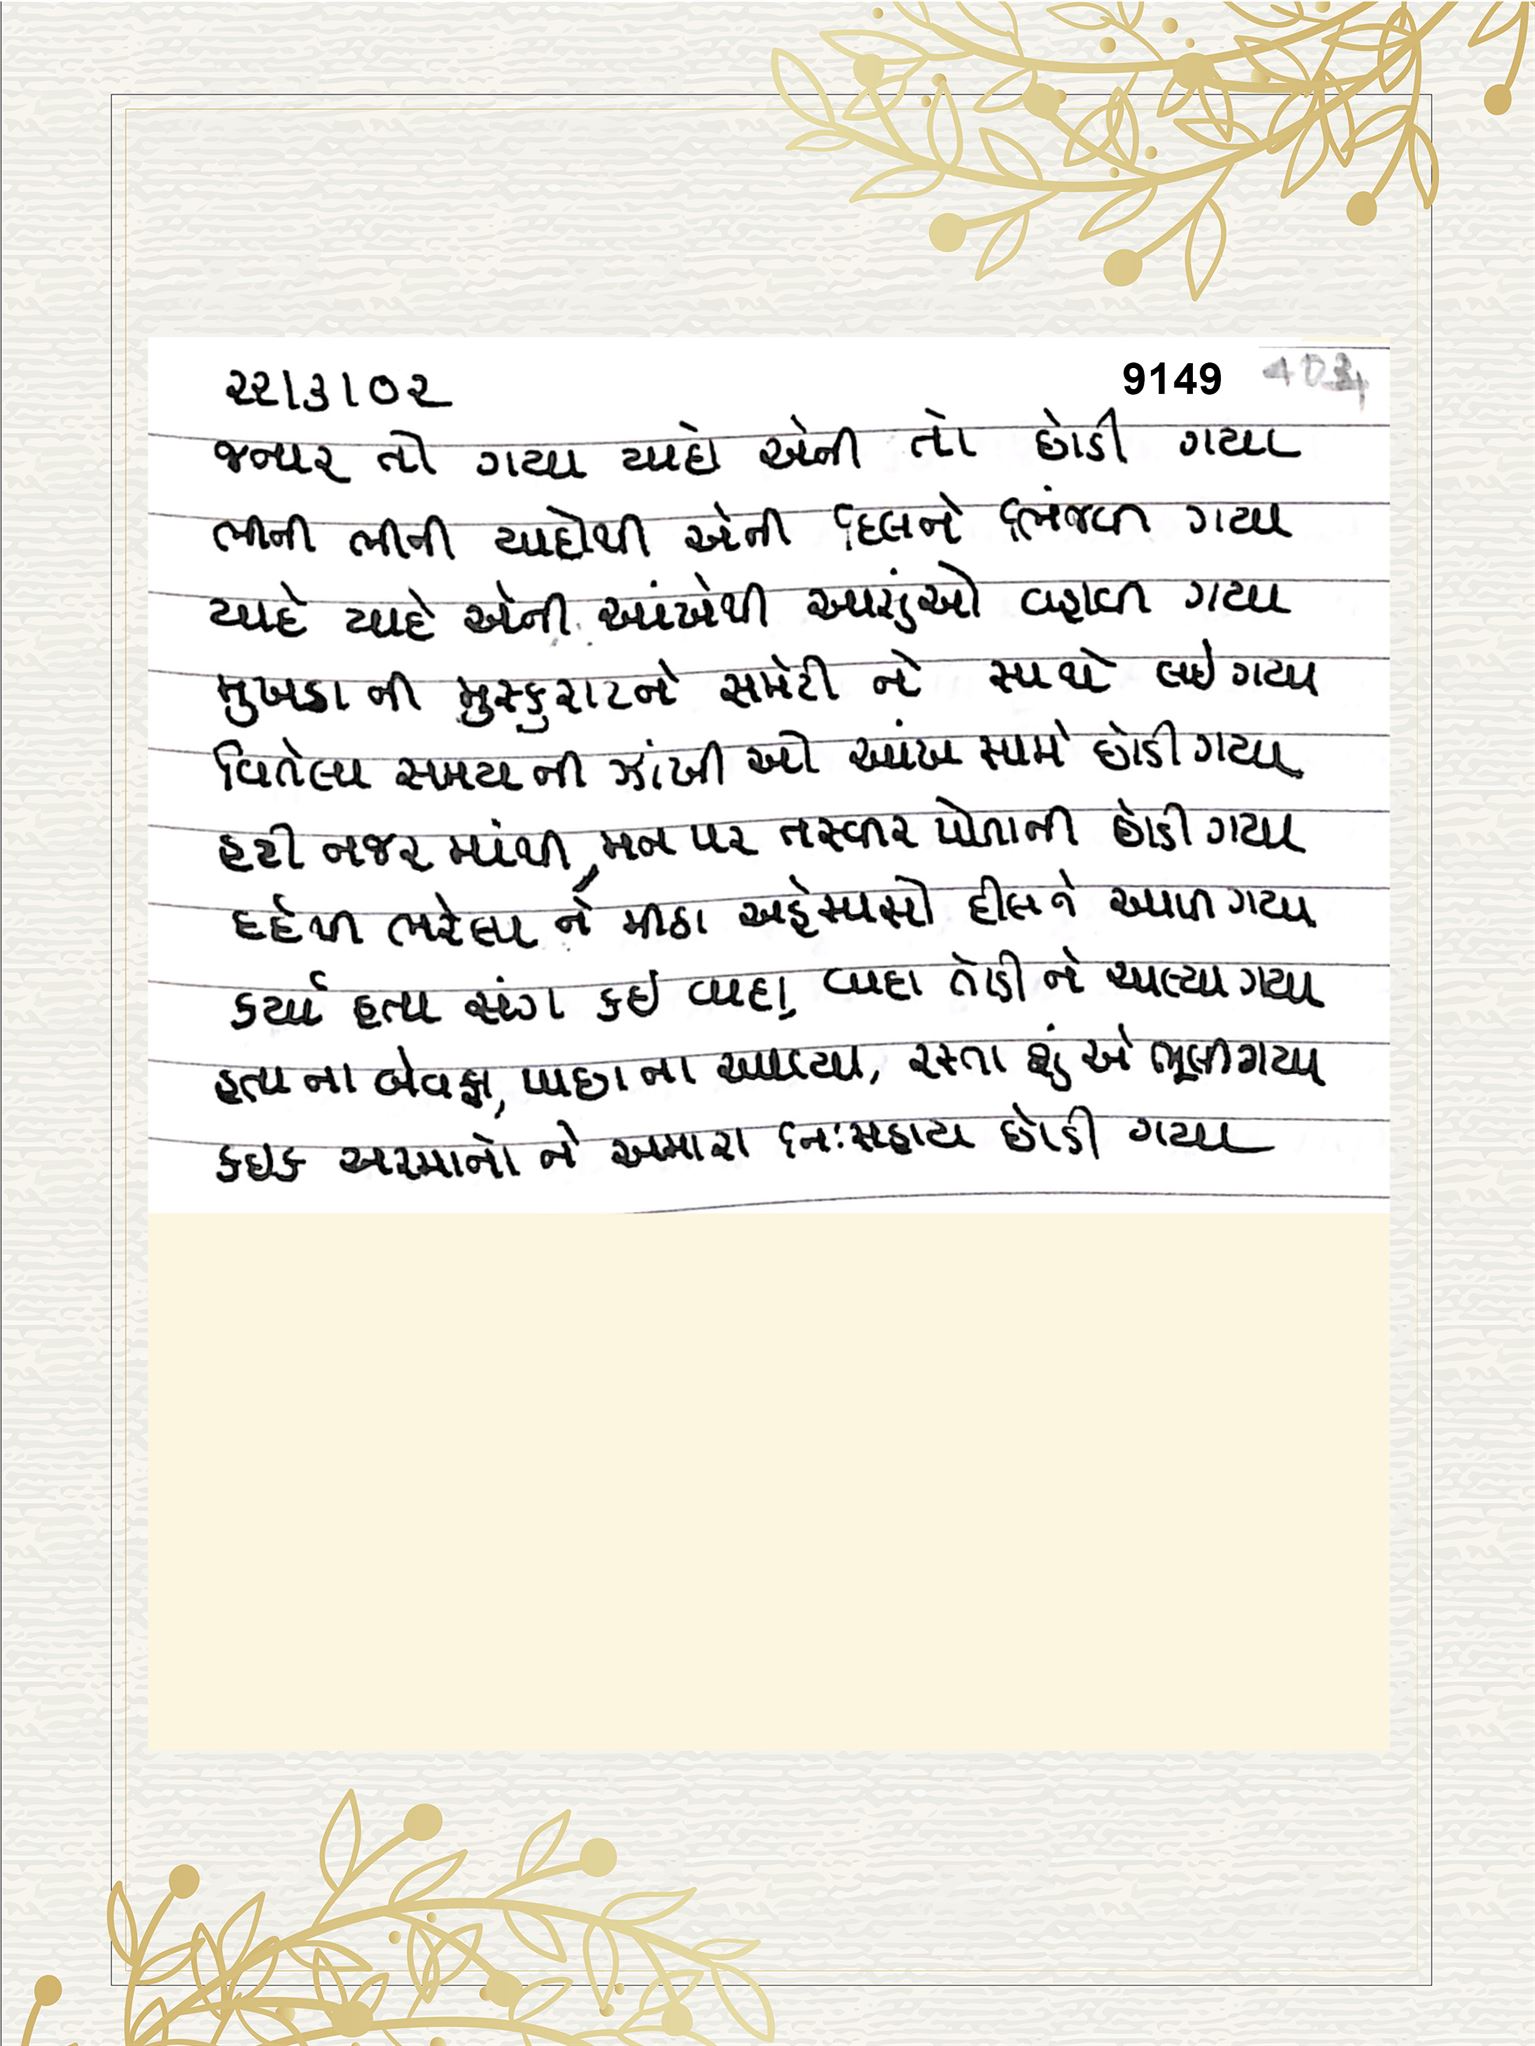 ૨૨/૩/૦૨ 9149
જનાર તો ગયા યાદો એની તો છોડી ગયા
ભીની ભીની યાદોથી એની દિલને ભિંજવી ગયા
યાદે યાદે એની આંખેથી આસુંઓ વહાવી ગયા
મુખડા ની મુસ્કુરાટને સમેટી ને સાથે લઈ ગયા
વિતેલા સમય ની ઝાંખી ઓ આંખ સામે છોડી ગયા
હટી નજર માંથી, મન પર તસ્વીર પોતાની છોડી ગયા
દર્દથી ભરેલા ને મીઠા અહેસાસો દીલ ને આપી ગયા
કર્યા હતા સંગ કઇ વાદા, વાદા તોડી ને ચાલ્યા ગયા
હતા ના બેવફા, પાછા ના આવ્યા, રસ્તા શું એ ભૂલી ગયા
કઇક અરમાનો ને અમારા નિઃસહાય છોડી ગયા